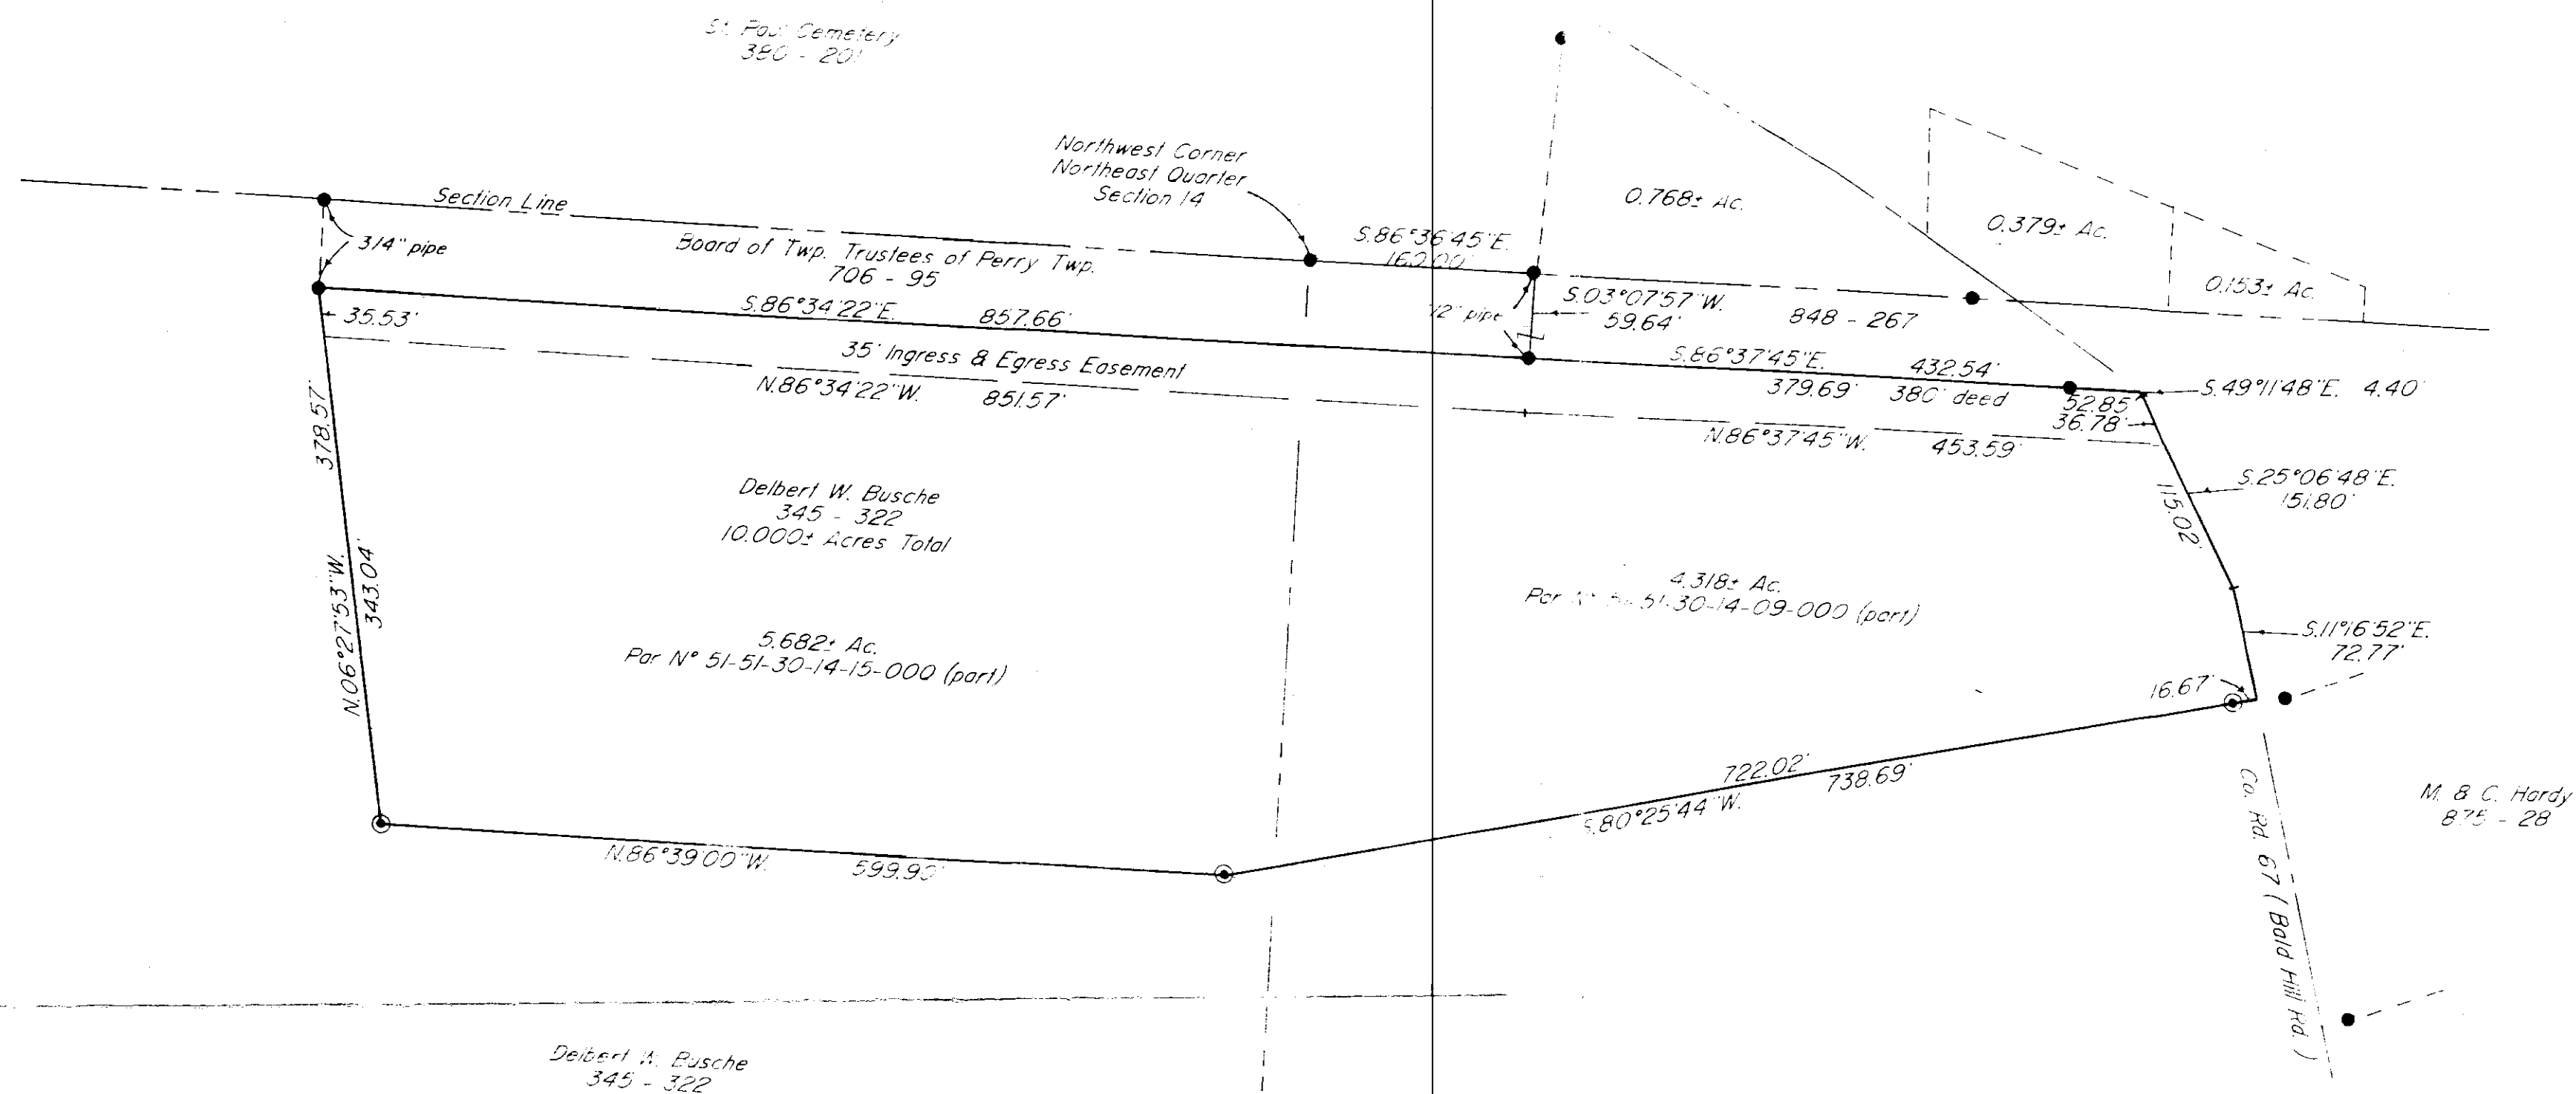 St. Paul Cemetery
380 - 201
Northwest Corner
Northeast Quarter
Section 14
Section Line
3/4" pipe
Board of Twp. Trustees of Perry Twp.
706 - 95
S.86°36'45"E.
160.00'
0.768± Ac.
0.379± Ac.
0.153± Ac.
S.86°34'22"E. 857.66'
35.53'
1/2" pipe
S.03°07'57"W.
59.64'
848 - 267
35' Ingress & Egress Easement
N.86°34'22"W. 851.57'
S.86°37'45"E. 432.54'
379.69' 380' deed
52.85'
36.78'
S.49°11'48"E. 4.40'
N.86°37'45"W. 453.59'
S.25°06'48"E.
151.80'
115.02'
378.57'
N.06°27'53"W.
343.04'
Delbert W. Busche
345 - 322
10.000± Acres Total
5.682± Ac.
Par Nº 51-51-30-14-15-000 (part)
4.318± Ac.
Par Nº 51-51-30-14-09-000 (part)
S.11°16'52"E.
72.77'
16.67'
722.02'
738.69'
S.80°25'44"W.
N.86°39'00"W.
Co. Rd. 67 ( Bald Hill Rd. )
M. & C. Hardy
875 - 28
Delbert W. Busche
345 - 322